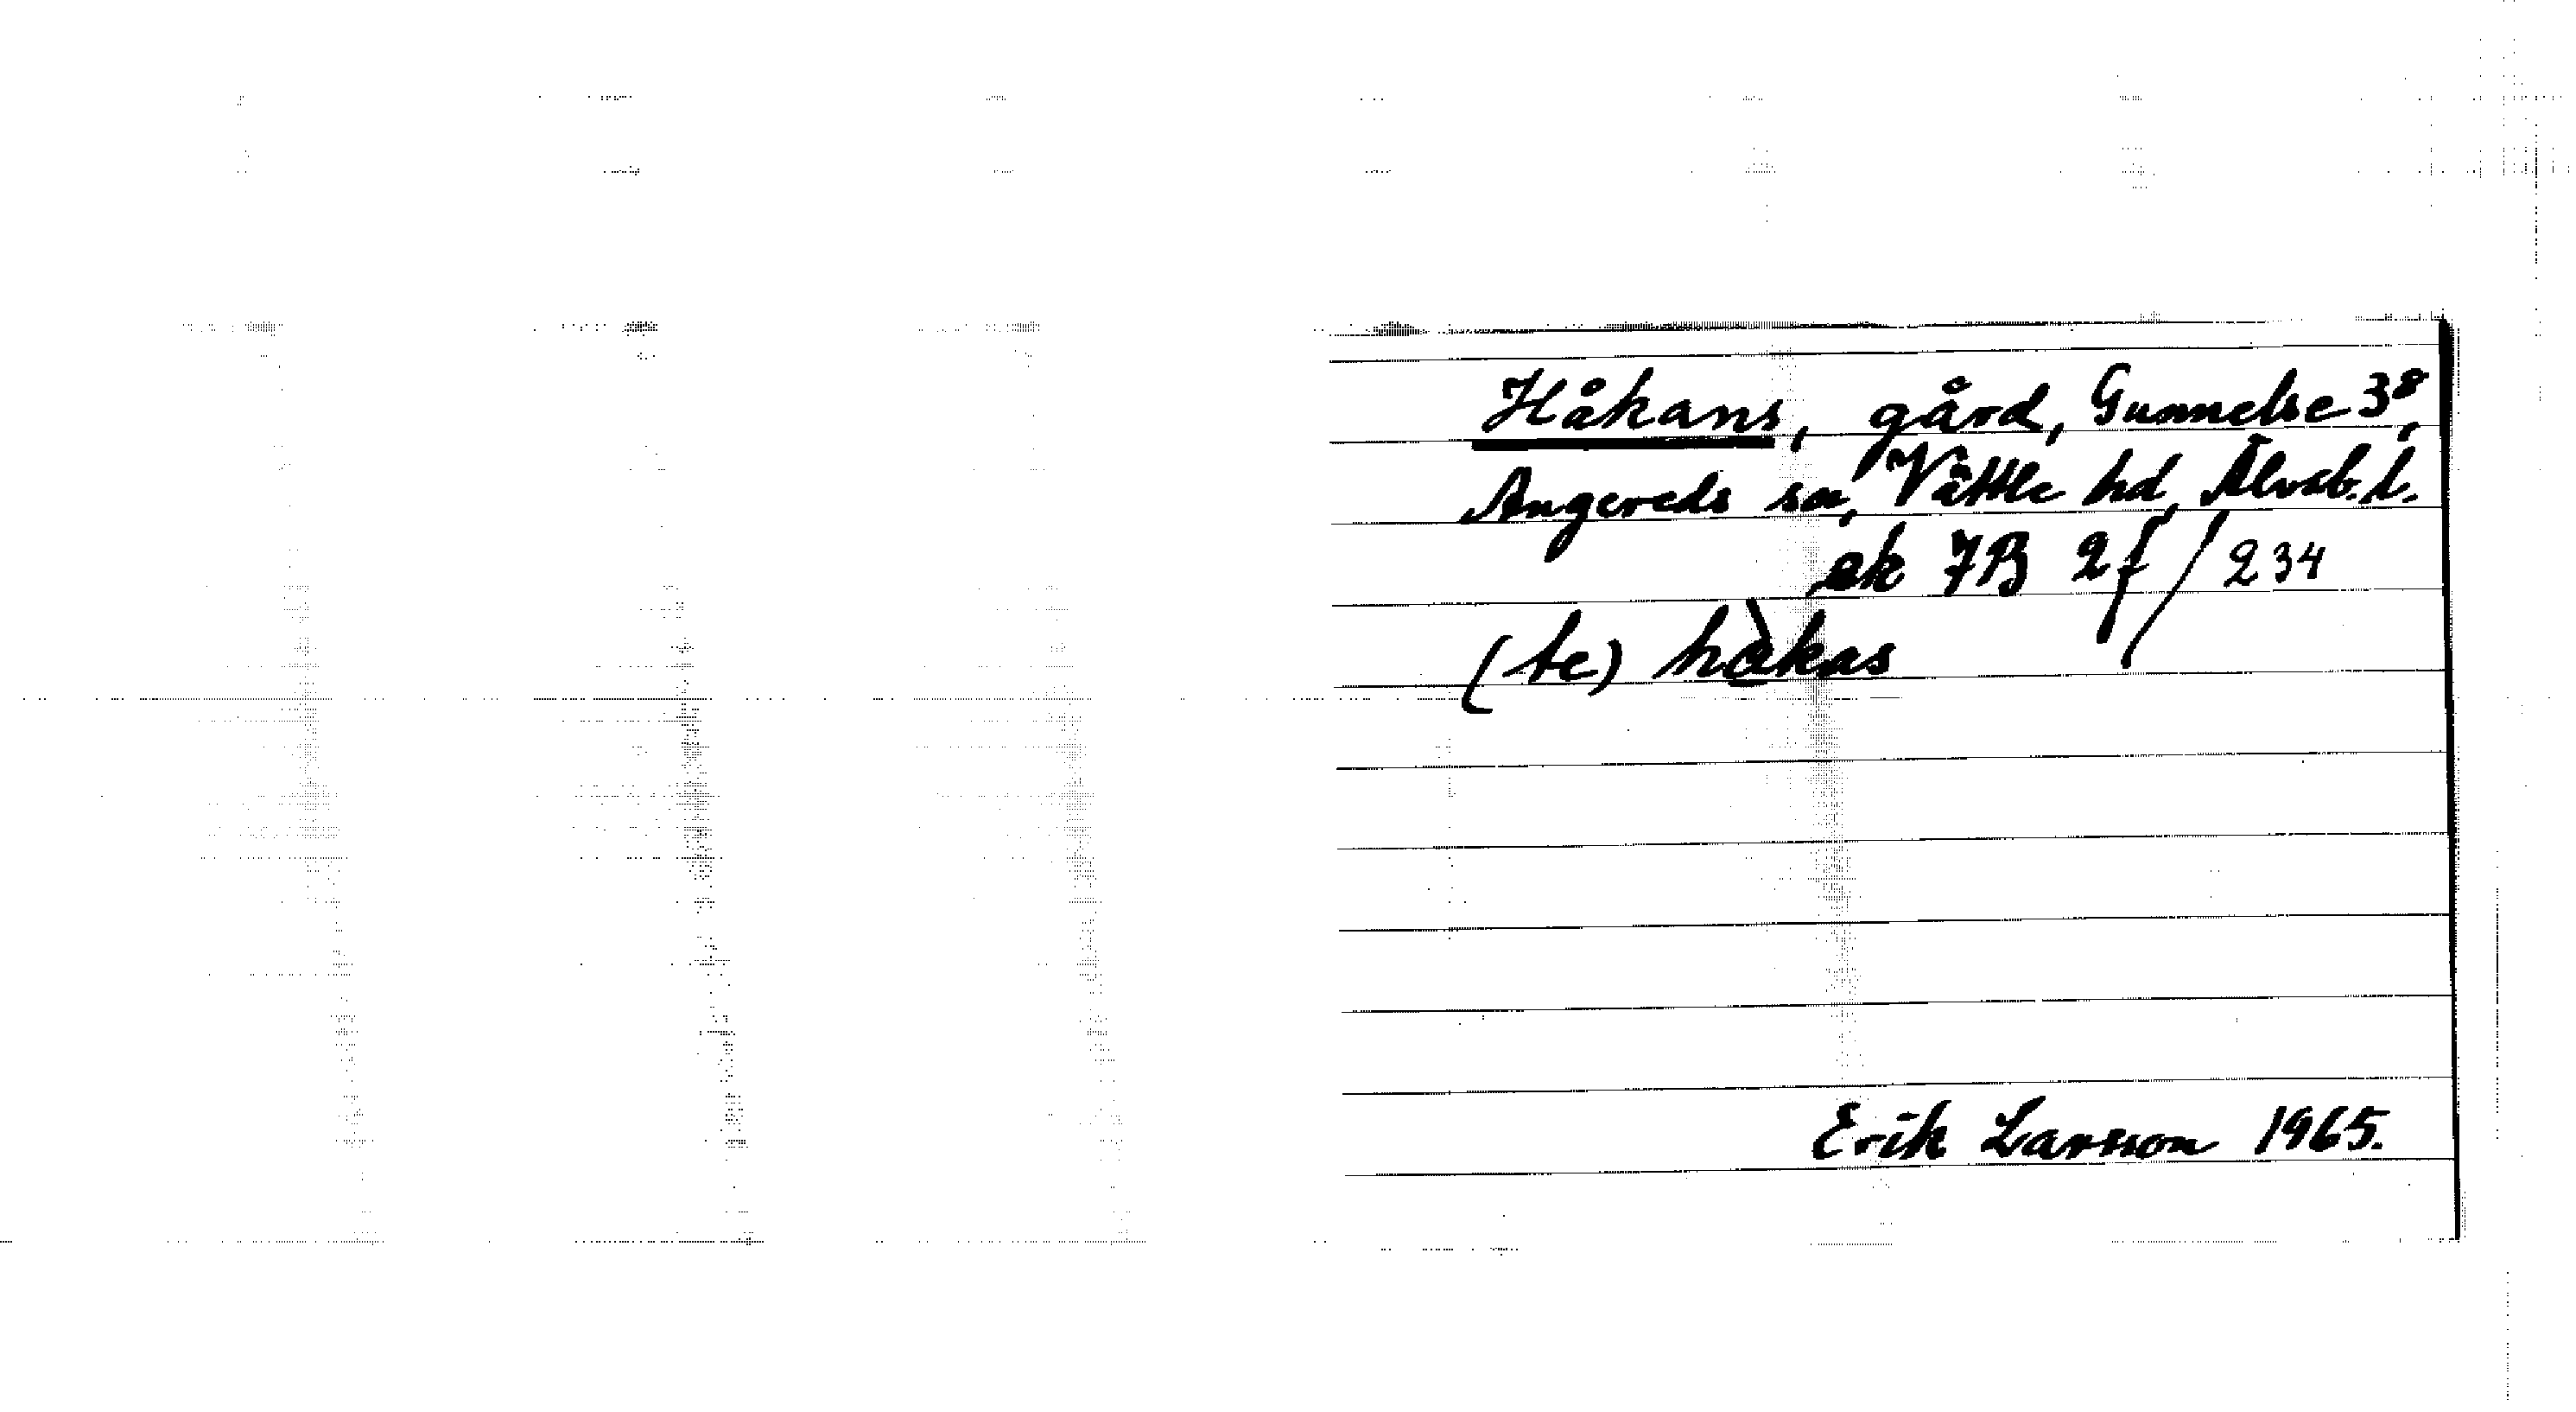 Håkans, gård, Gunnelse 3⁸,
Angereds sn, Vättle hd, Älvsb. l.
ek 7B 2f / 234
(te) hàkas
Erik Larsson 1965.